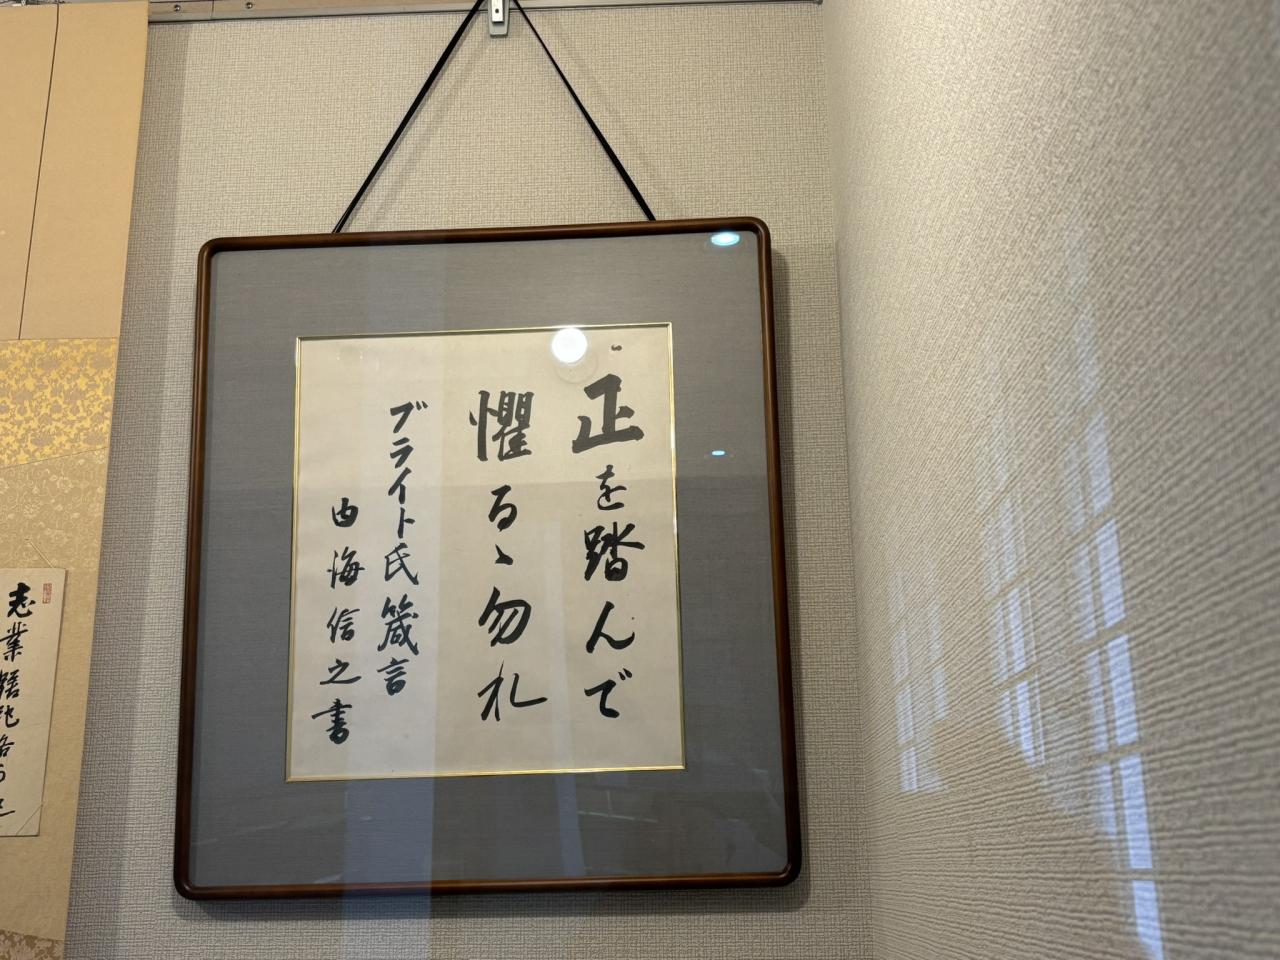 正を踏んで
懼るゝ勿れ
ブライト氏箴言
内海信之書
志業